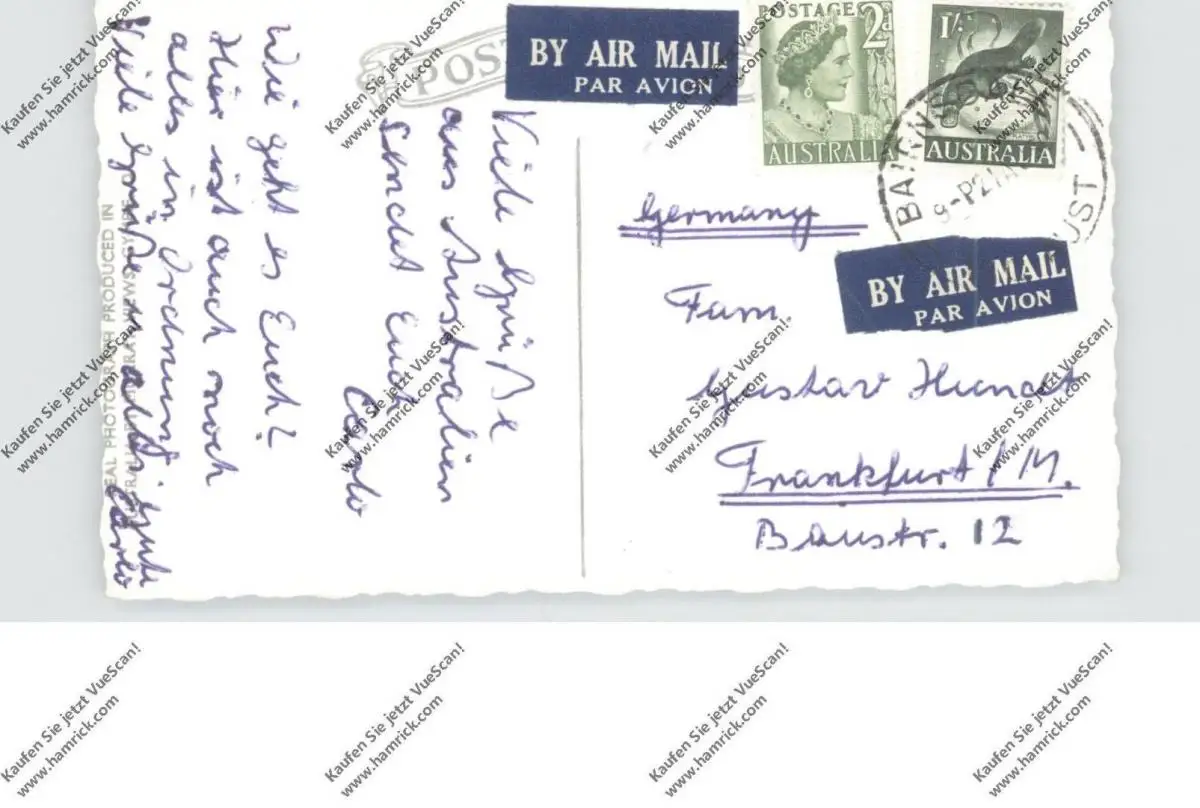 POST
BY AIR MAIL
PAR AVION
POSTAGE 2d
AUSTRALIA
1/-
AUSTRALIA
9-P21
UST
BY AIR MAIL
PAR AVION
Germany
Fam.
Gustav Hundt
Frankfurt/M.
Baustr. 12
Viele Grüße
aus Australien
sendet Euch
Carlo
Wie geht es Euch?
Hier ist auch noch
alles in Ordnung.
Viele Grüße an alle, Gute
Carlo
REAL PHOTOGRAPH PRODUCED IN
Kaufen Sie jetzt VueScan!
www.hamrick.com
Kaufen Sie jetzt VueScan!
www.hamrick.com
Kaufen Sie jetzt VueScan!
www.hamrick.com
Kaufen Sie jetzt VueScan!
www.hamrick.com
Kaufen Sie jetzt VueScan!
www.hamrick.com
Kaufen Sie jetzt VueScan!
www.hamrick.com
Kaufen Sie jetzt VueScan!
www.hamrick.com
Kaufen Sie jetzt VueScan!
www.hamrick.com
Kaufen Sie jetzt VueScan!
www.hamrick.com
Kaufen Sie jetzt VueScan!
www.hamrick.com
Kaufen Sie jetzt VueScan!
www.hamrick.com
Kaufen Sie jetzt VueScan!
www.hamrick.com